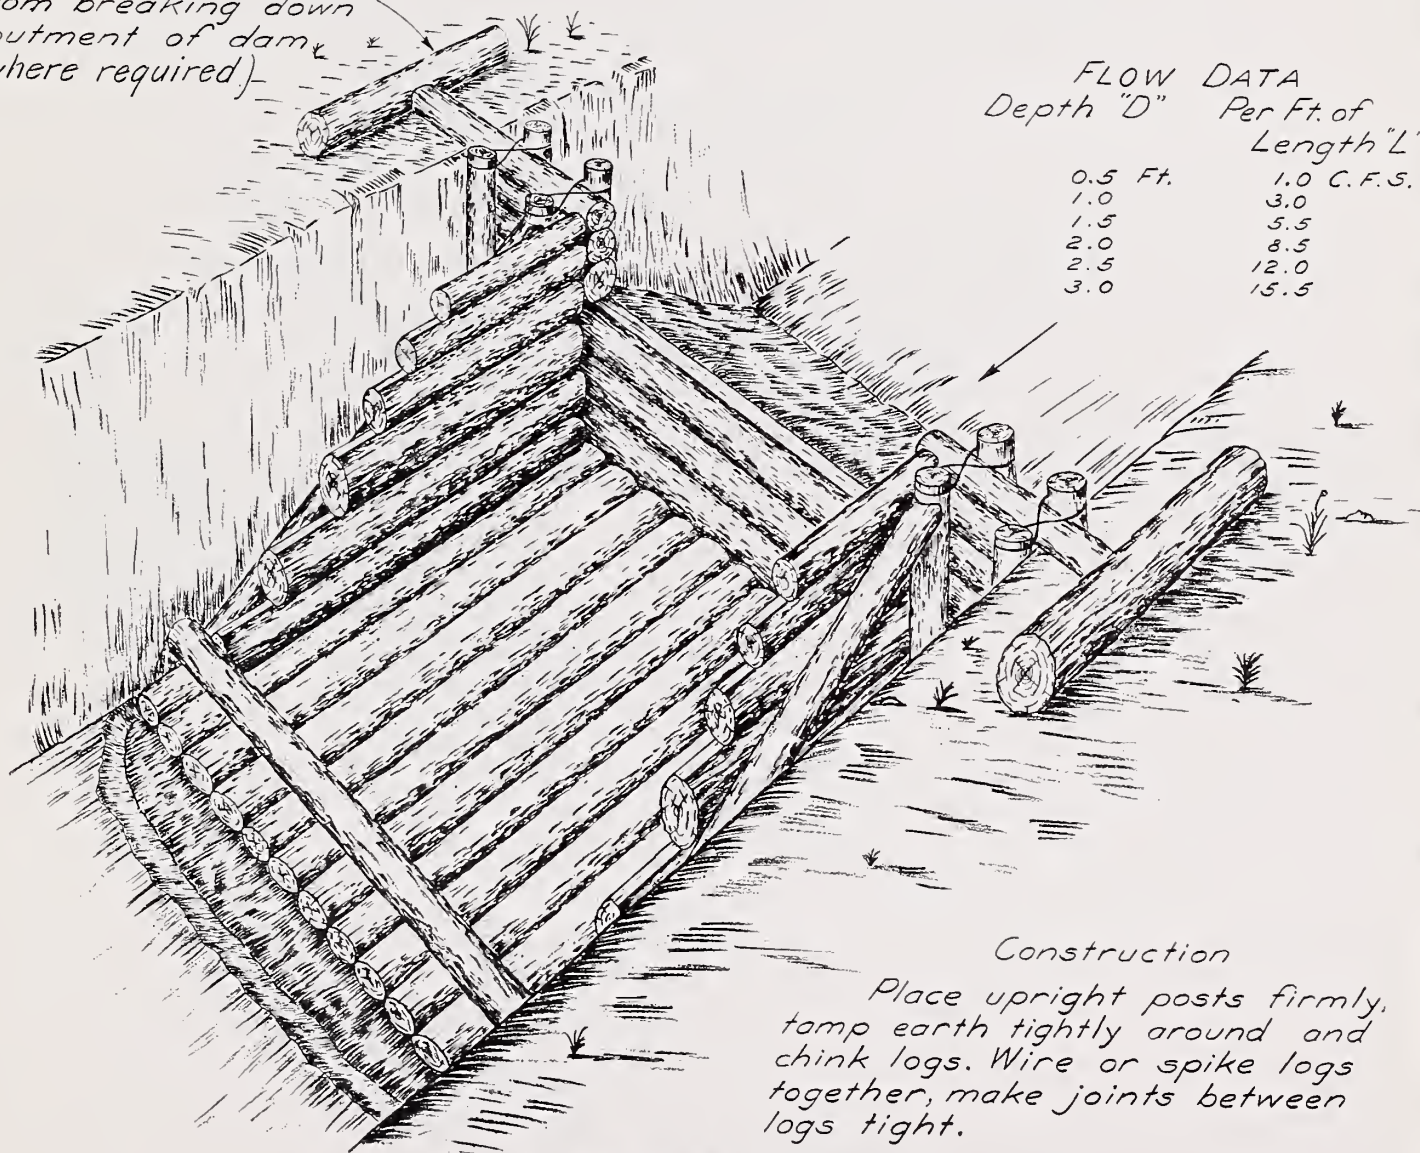 breaking down
of dam
required)
FLOW DATA
Depth "D" Per Ft. of
Length "L"
0.5 Ft. 1.0 C.F.S.
1.0 3.0
1.5 5.5
2.0 8.5
2.5 12.0
3.0 15.5
Construction
Place upright posts firmly,
tamp earth tightly around and
chink logs. Wire or spike logs
together, make joints between
logs tight.